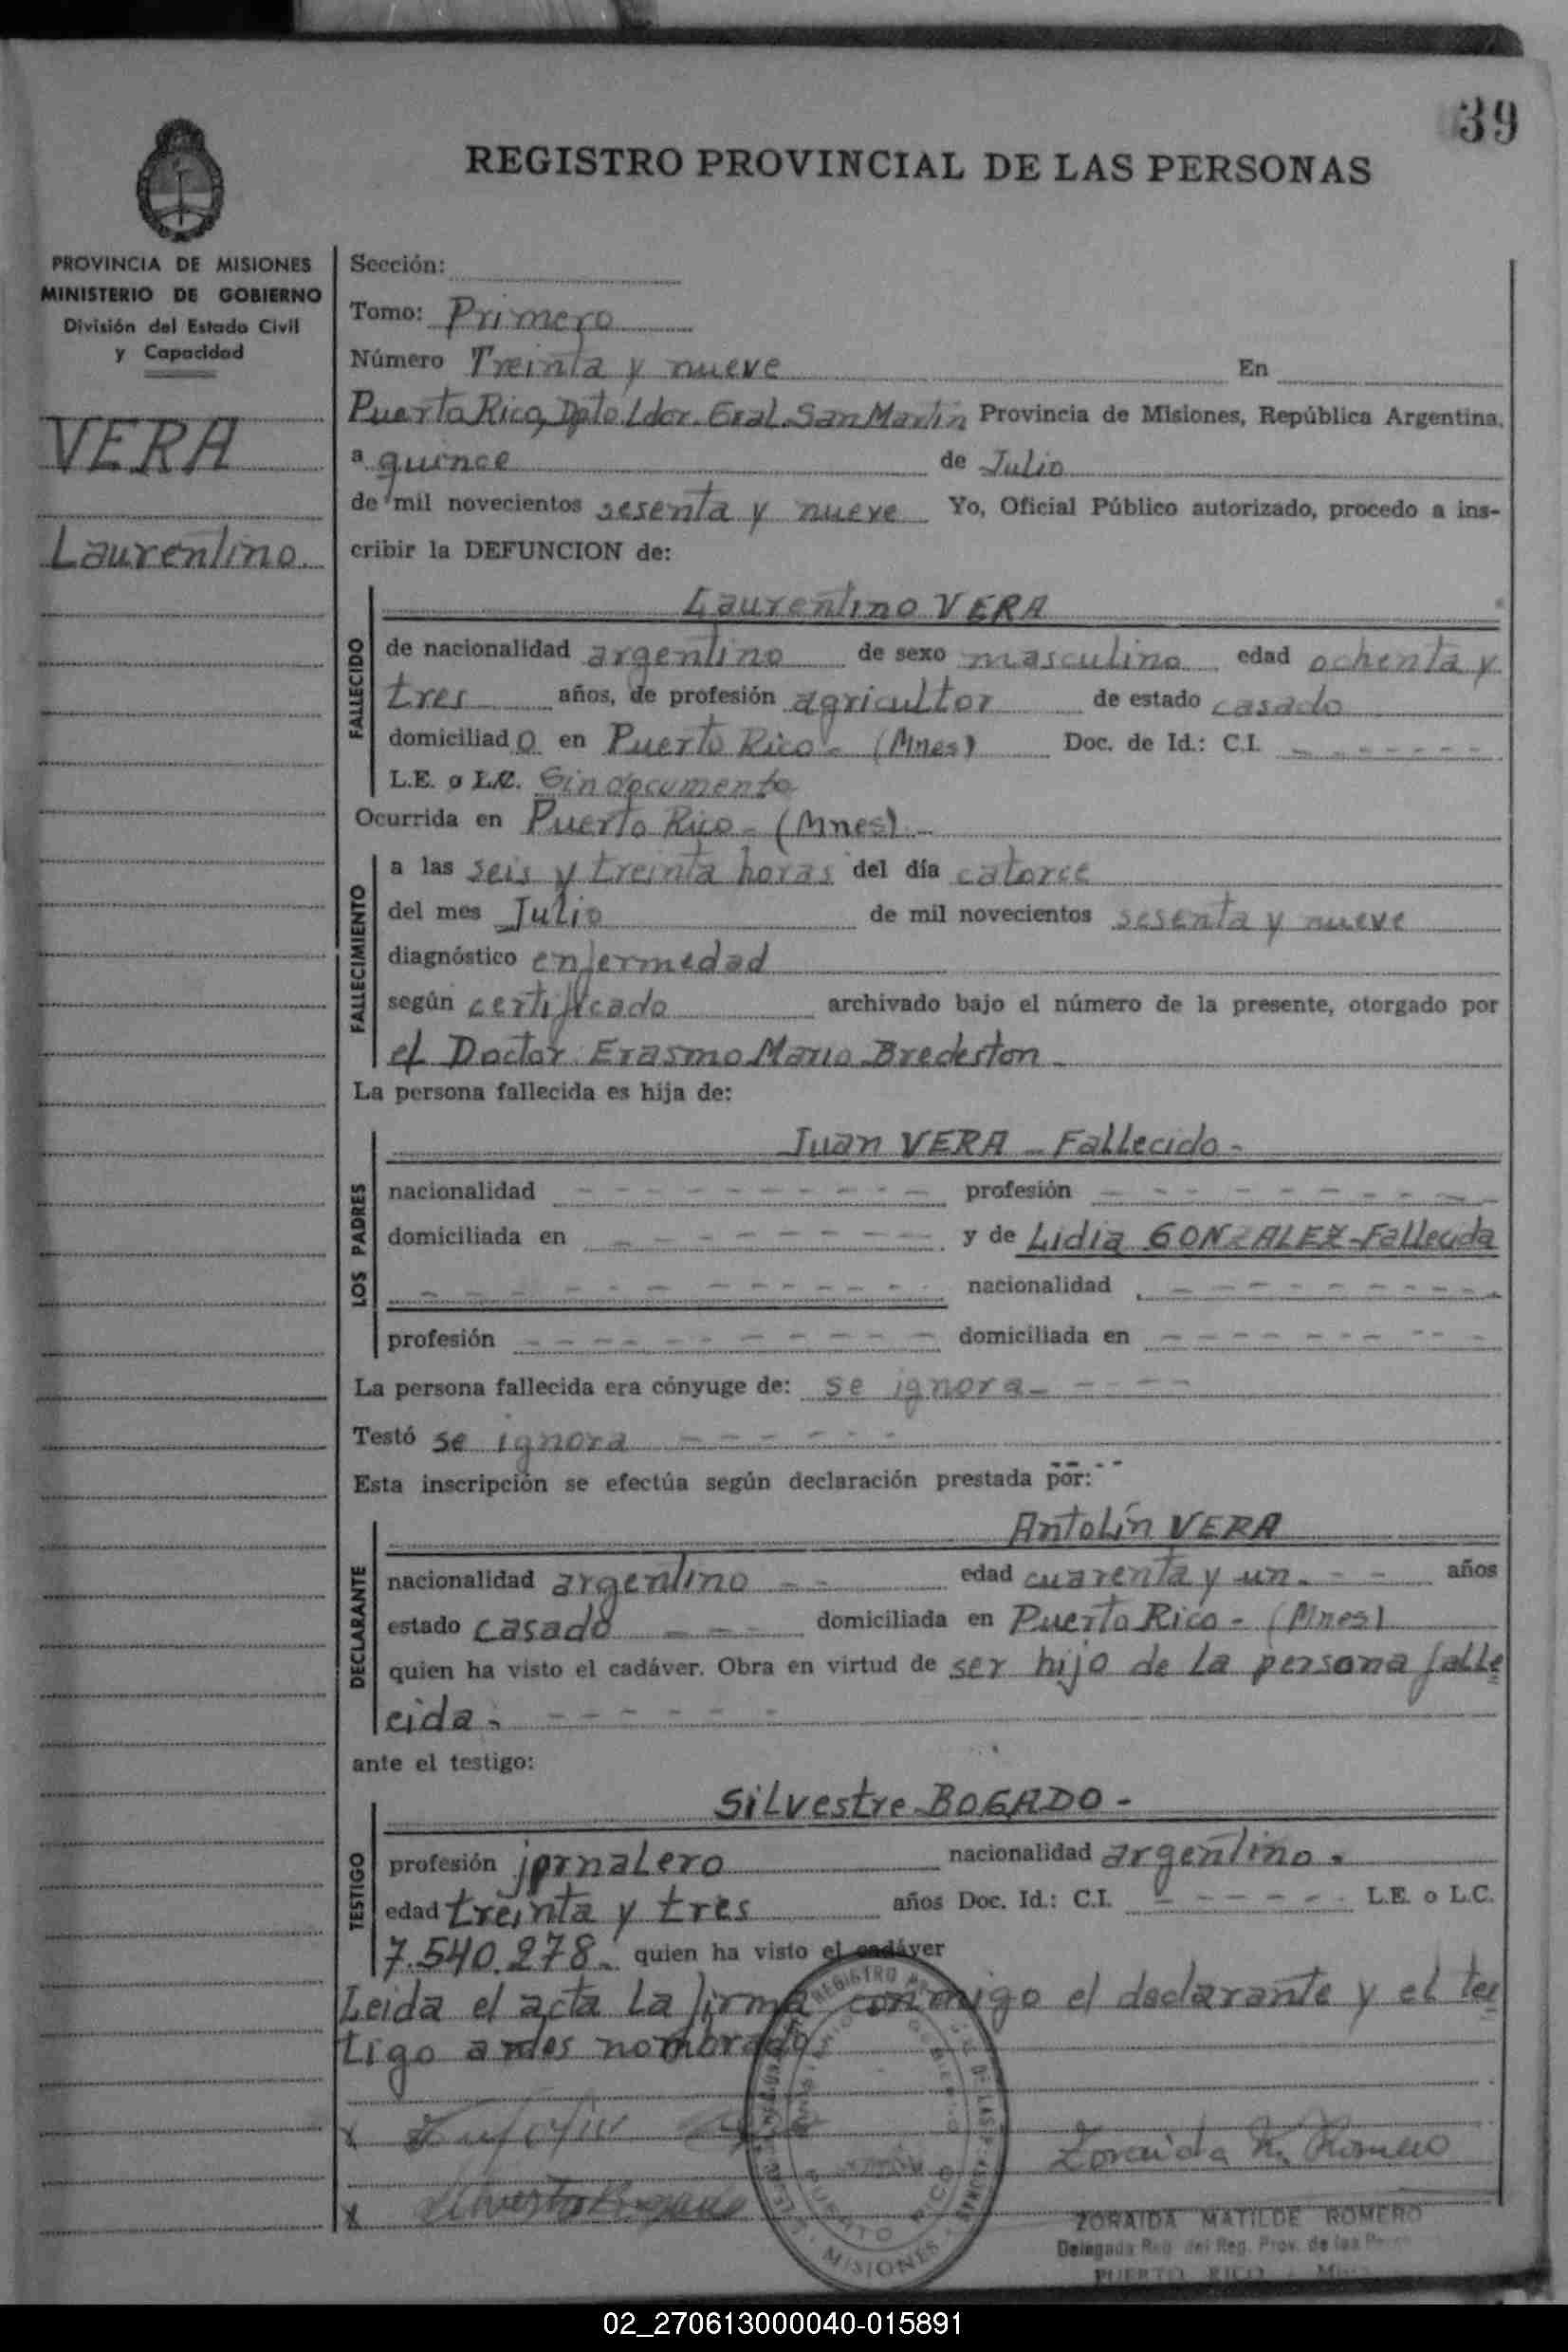 39
REGISTRO PROVINCIAL DE LAS PERSONAS
PROVINCIA DE MISIONES
MINISTERIO DE GOBIERNO
División del Estado Civil
y Capacidad
VERA
Laurentino.
Sección:
Tomo: Primero
Número Treinta y nueve En
Puerto Rico, Dpto. Ldor. Gral. San Martín Provincia de Misiones, República Argentina,
a quince de Julio
de mil novecientos sesenta y nueve Yo, Oficial Público autorizado, procedo a ins-
cribir la DEFUNCION de:
Laurentino VERA
FALLECIDO
de nacionalidad argentino de sexo masculino edad ochenta y
tres años, de profesión agricultor de estado casado
domiciliado en Puerto Rico - (Mnes) Doc. de Id.: C.I. - - - - - -
L.E. o L.C. Sin documento
Ocurrida en Puerto Rico - (Mnes) -
FALLECIMIENTO
a las seis y treinta horas del día catorce
del mes Julio de mil novecientos sesenta y nueve
diagnóstico enfermedad
según certificado archivado bajo el número de la presente, otorgado por
el Doctor Erasmo Mario Bredeston
La persona fallecida es hija de:
Juan VERA - Fallecido -
LOS PADRES
nacionalidad - - - - - - profesión - - - - - -
domiciliada en - - - - - - y de Lidia GONZALEZ - Fallecida
- - - - - - nacionalidad - - - - - -
profesión - - - - - - domiciliada en - - - - - -
La persona fallecida era cónyuge de: se ignora - - - - -
Testó se ignora - - - - - -
Esta inscripción se efectúa según declaración prestada por:
Antolín VERA
DECLARANTE
nacionalidad argentino - - edad cuarenta y un. - - años
estado casado - - - domiciliada en Puerto Rico - (Mnes)
quien ha visto el cadáver. Obra en virtud de ser hijo de la persona falle
cida. - - - - - -
ante el testigo:
Silvestre BOGADO -
TESTIGO
profesión jornalero nacionalidad argentino.
edad treinta y tres años Doc. Id.: C.I. - - - - - - L.E. o L.C.
7.540.278. quien ha visto el cadáver
Leida el acta la firma conmigo el declarante y el tes
tigo antes nombrado
x
Zoraida M. Romero
x
REGISTRO
PUERTO RICO
MISIONES
ZORAIDA MATILDE ROMERO
Delegada del Reg. Prov. de las
PUERTO RICO
02_270613000040-015891